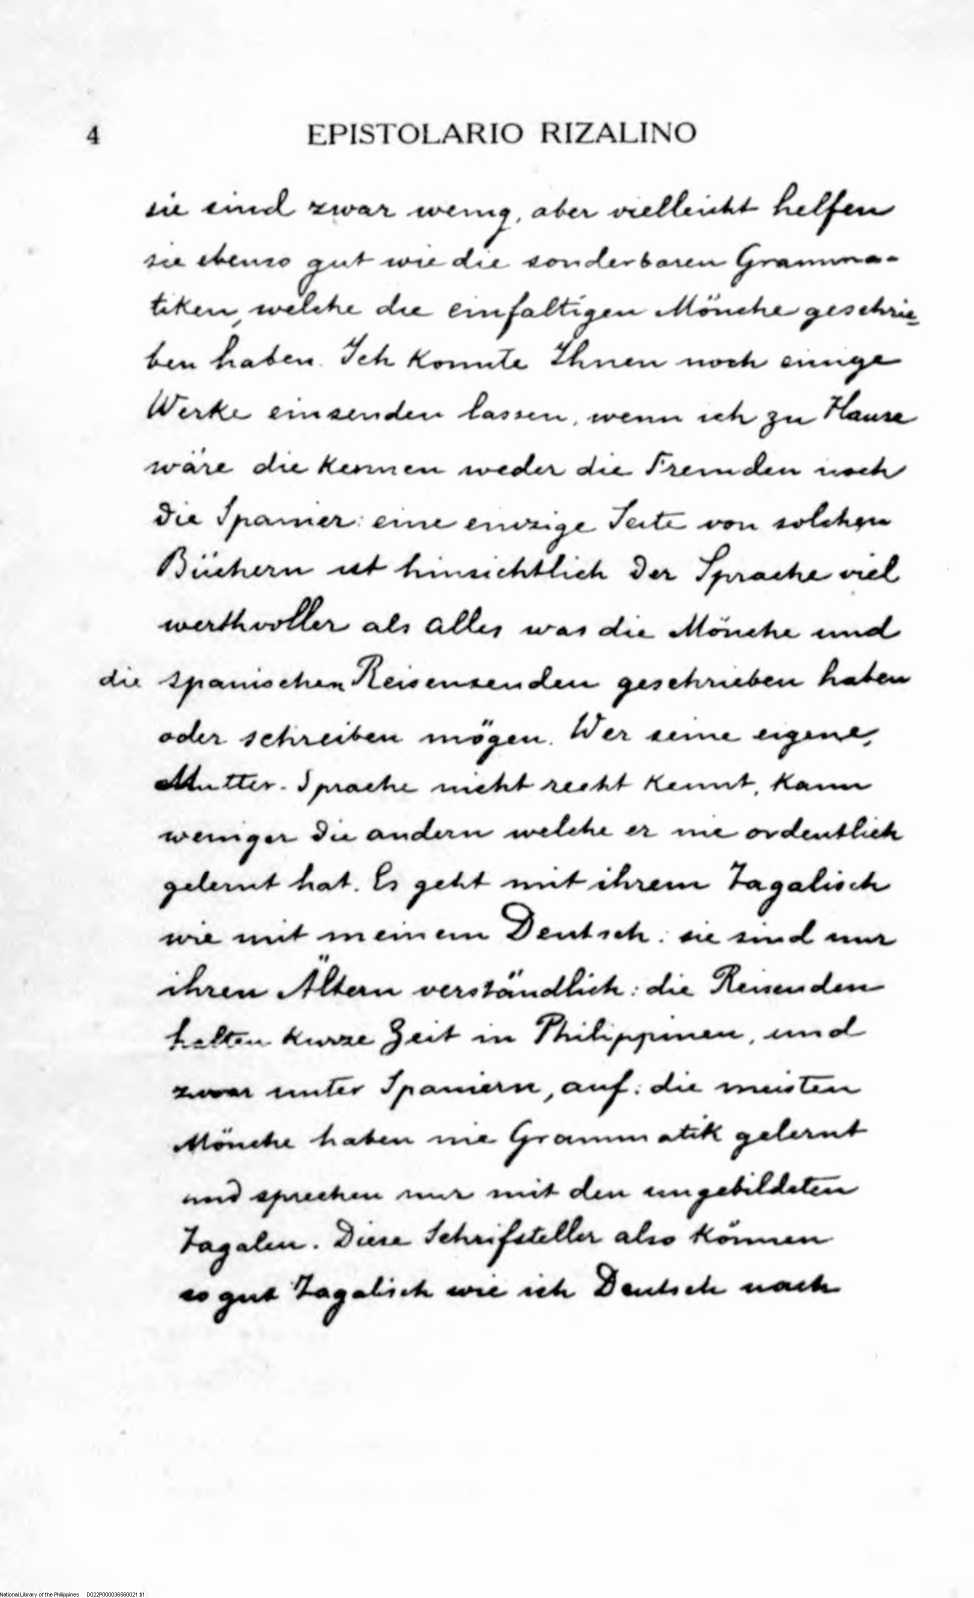 4
EPISTOLARIO RIZALINO
sie sind zwar wenig, aber vielleicht helfen
sie ebenso gut wie die sonderbaren Gramma-
tiken, welche die einfaltigen Mönche geschrie-
ben haben. Ich konnte Ihnen noch einige
Werke einsenden lassen, wenn ich zu Hause
wäre die kennen weder die Fremden noch
die Spanier: eine einzige Seite von solchen
Büchern ist hinsichtlich der Sprache viel
werthvoller als alles was die Mönche und
die spanischen Reisensenden geschrieben haben
oder schreiben mögen. Wer seine eigene,
Mutter-Sprache nicht recht kennt, kann
weniger die andern welche er nie ordentlich
gelernt hat. Es geht mit ihrem Tagalisch
wie mit meinem Deutsch: sie sind nur
ihren Ältern verständlich: die Reisenden
halten kurze Zeit in Philippinen, und
zwar unter Spaniern, auf: die meisten
Mönche haben nie Grammatik gelernt
und sprechen nur mit den ungebildeten
Tagalen. Diese Schrifsteller also können
so gut Tagalisch wie ich Deutsch nach
National Library of the Philippines